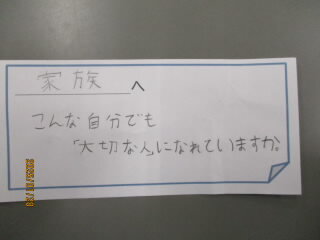 家族へ
こんな自分でも
「大切な人」になれていますか。